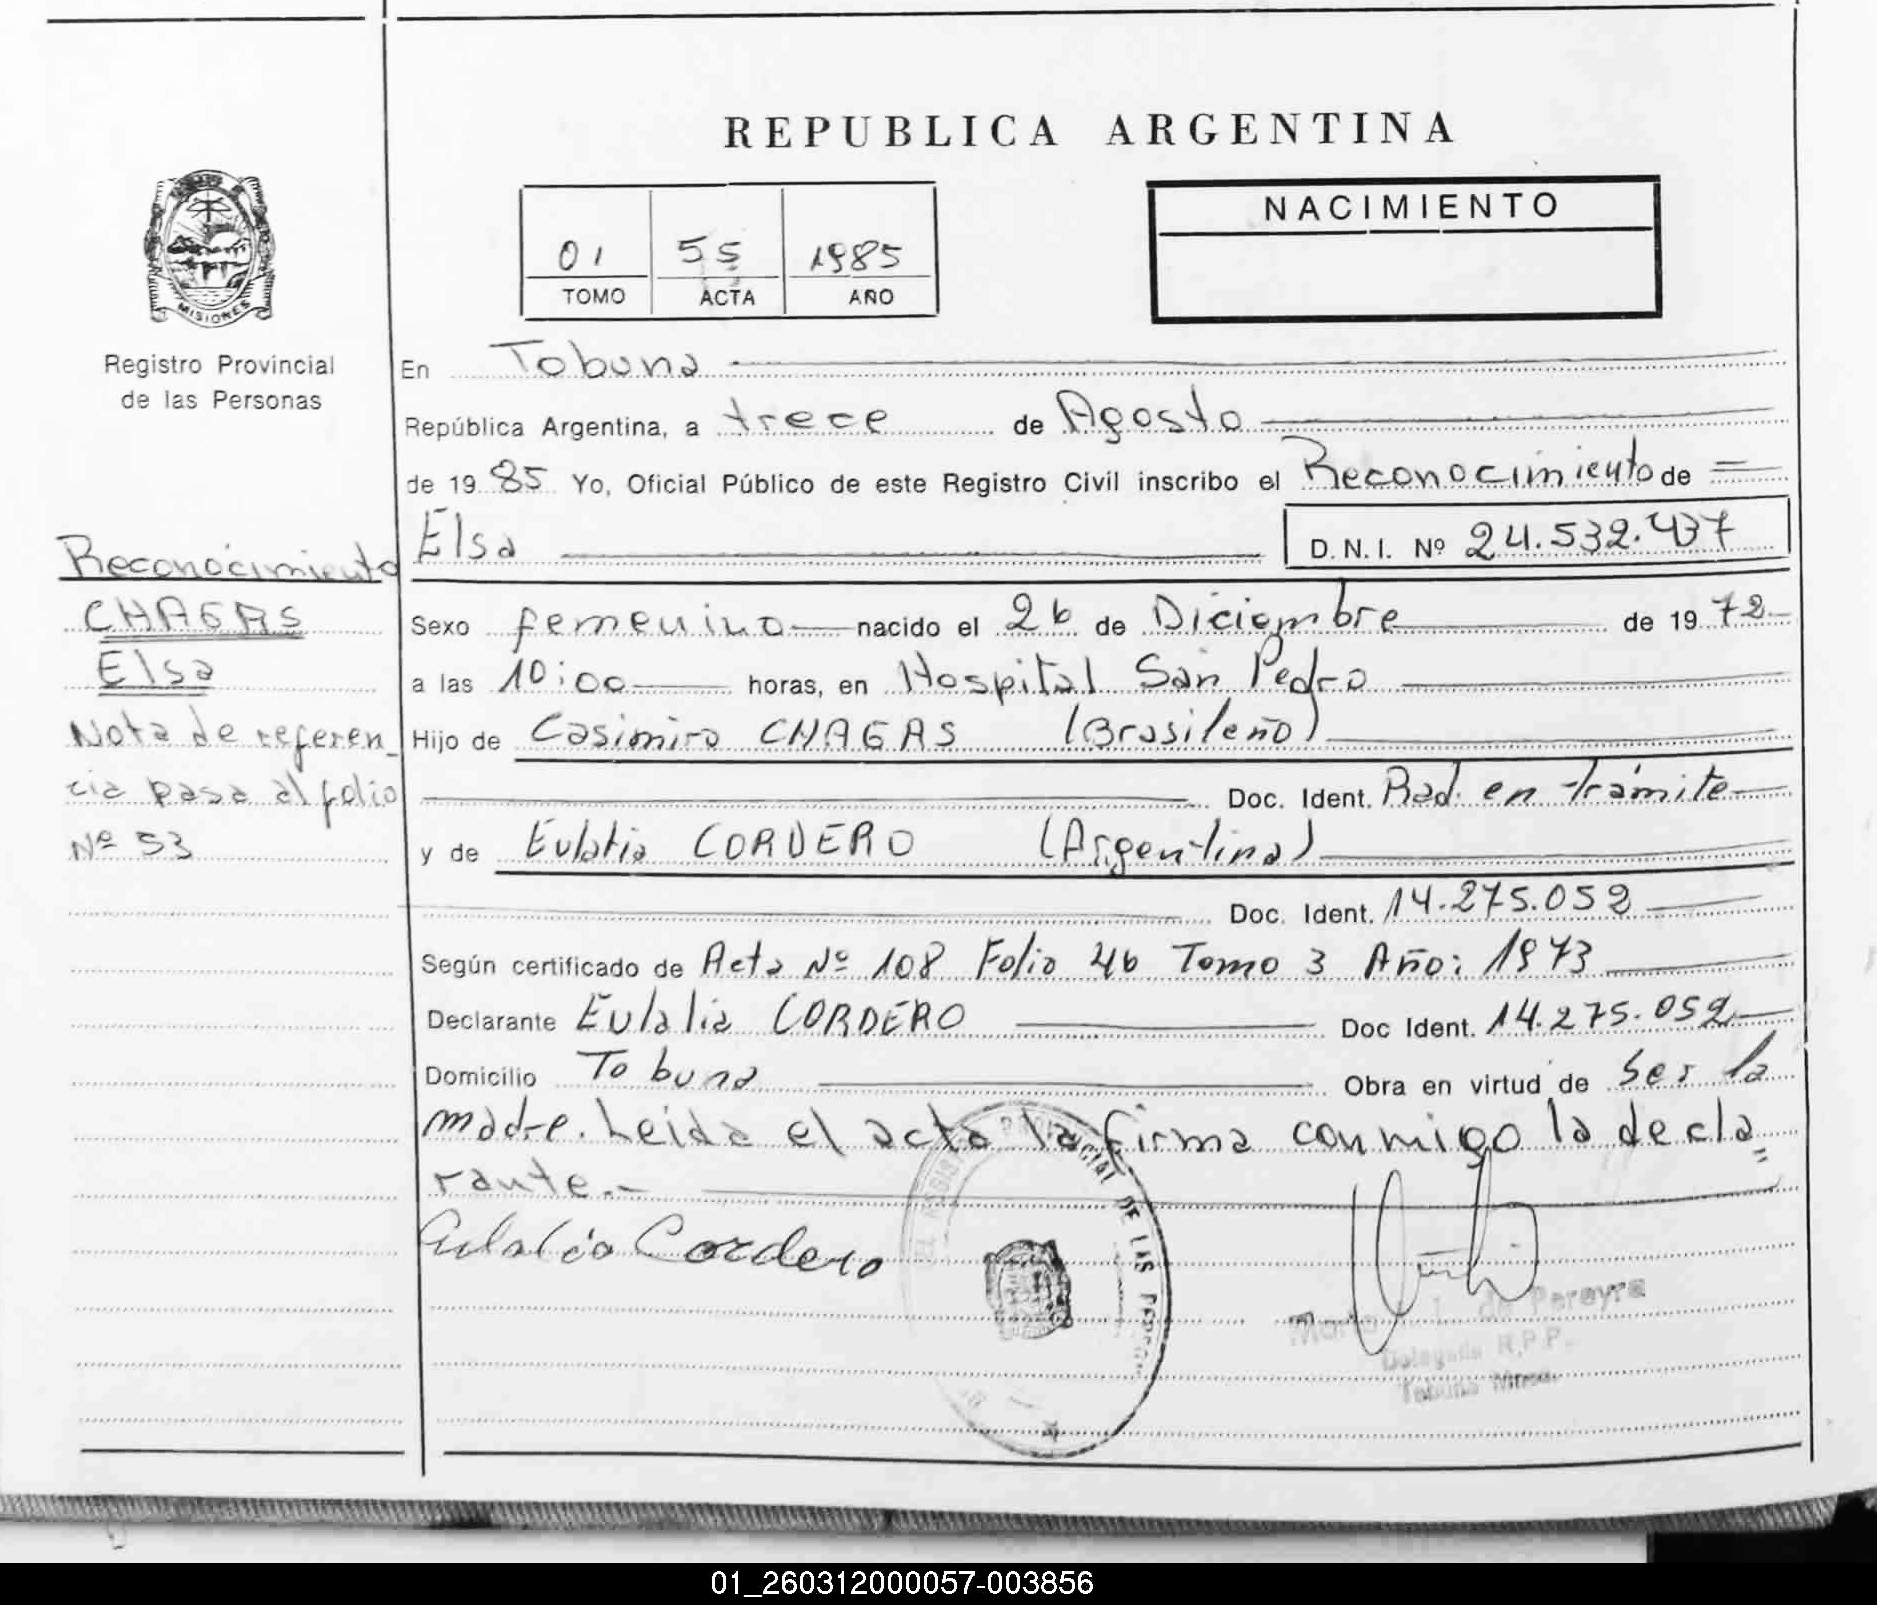 REPUBLICA ARGENTINA
NACIMIENTO
01 55 1985
TOMO ACTA AÑO
MISIONES
Registro Provincial
de las Personas
En Tobuna
República Argentina, a trece de Agosto
de 1985 Yo, Oficial Público de este Registro Civil inscribo el Reconocimiento de
Elsa D.N.I. Nº 24.532.437
Reconocimiento
CHAGAS
Elsa
Nota de referen-
cia pasa al folio
Nº 53
Sexo femenino nacido el 26 de Diciembre de 1972
a las 10:00 horas, en Hospital San Pedro
Hijo de Casimiro CHAGAS (Brasileño)
Doc. Ident. Rad. en trámite
y de Eulalia CORDERO (Argentina)
Doc. Ident. 14.275.052
Según certificado de Acta Nº 108 Folio 46 Tomo 3 Año: 1973
Declarante Eulalia CORDERO Doc Ident. 14.275.052
Domicilio Tobuna Obra en virtud de ser la
madre. Leida el acta la firma conmigo la decla
rante.-
Eulalia Cordero
PROVINCIAL DE LAS
de Pereyra
Delegada R.P.P.
Tobuna
01_260312000057-003856